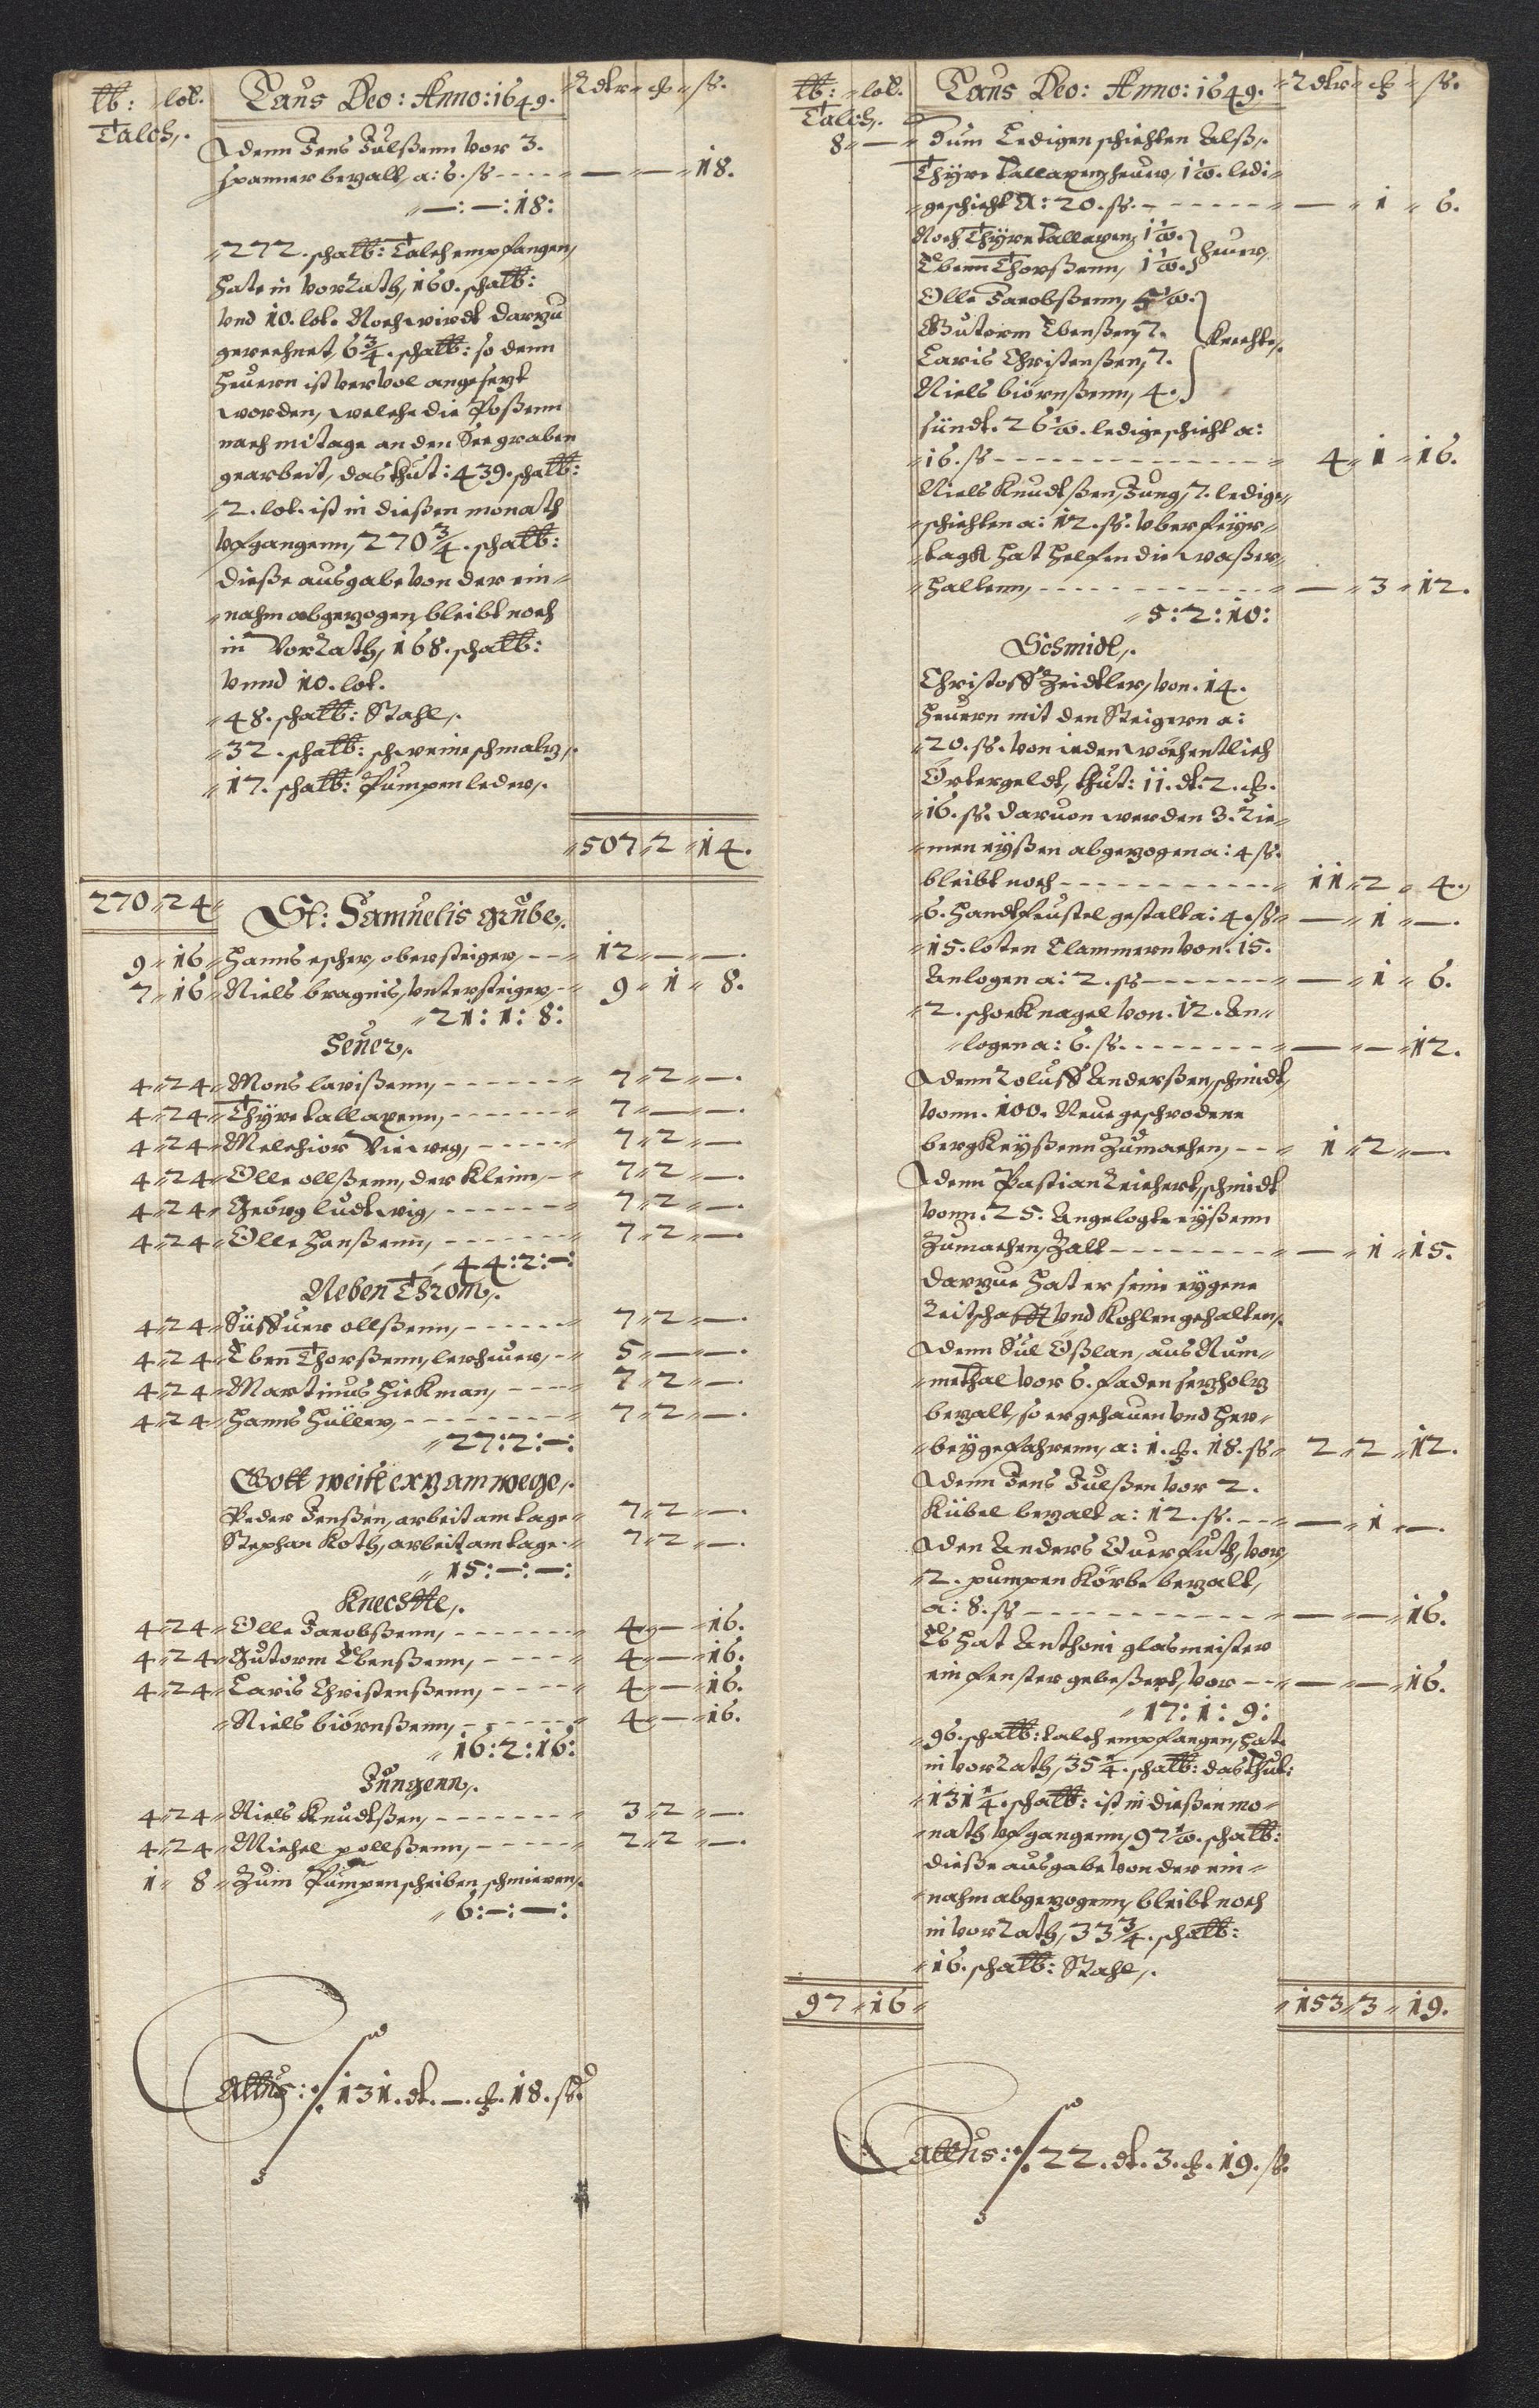 ℔: lot. Laus Deo: Anno: 1649. Rdlr ₰ ß.
Talch,.
Adenn Jens Julßenn vor 3.
spanner bezalt, a: 6. ß - - - - — — 18.
—: —: 18:
272. schalt℔: Talch empfangen,
hate in vorrath, 160. schalt℔:
vnd 10. lot. Noch wirdt darzu
gerechnet, 6 3/4. schalt℔: so denn
heuern ist ver vol angesezt
worden, welche die Poßenn
nach mitage an den Seegraben
gearbeit, das thut: 439. schalt℔:
2. lot. ist in dießen monath
vfgangenn, 270 3/4. schalt℔:
dieße ausgabe von der ein=
nahm abgezogen, bleibt noch
in Vorrath, 168. schalt℔:
vnnd 10. lot.
48. schalt℔: Stahl,.
32. schalt℔: schweine schmalz,.
17. schalt℔: Pumpen leder,.
507 2 14.
270 24 St: Samuelis grube,.
9 16 Hanns escher, obersteiger, - - 12 — —.
7 16 Niels bragnis, vntersteiger, - 9 1 8.
21: 1: 8:
Heuer,.
4 24 Mons larißenn, - - - - - - 7 2 —.
4 24 Thyre tallaxenn, - - - - - - 7 — —.
4 24 Melchior Vieweg, - - - - - 7 2 —.
4 24 Olle ollßenn, der kleine, - 7 2 —.
4 24 Geörg ludtwig, - - - - - - 7 2 —.
4 24 Olle Hanßenn, - - - - - - 7 2 —.
44: 2: —:
Neben Throm,.
4 24 Siffuer ollßenn, - - - - - - 7 2 —.
4 24 Eben Thorßenn, lerheuer, - 5 — —.
4 24 Martinus Hickman, - - - - 7 2 —.
4 24 Hanns Hüller, - - - - - - - 7 2 —.
27: 2: —:
Gott weist erz am wege,.
Peder Jenßen, arbeit am tage 7 2 —.
Stephan Koth, arbeit am tage 7 2 —.
15: —: —:
Knechtte,.
4 24 Olle Jacobßenn, - - - - - - 4 — 16.
4 24 Gutorm Ebenßenn, - - - - - 4 — 16.
4 24 Laris Christenßenn, - - - - 4 — 16.
Niels biörnßenn, - - - - - - 4 — 16.
16: 2: 16:
Jungenn,.
4 24 Niels Knudtßen, - - - - - - 3 2 —.
4 24 Michel pollßenn, - - - - - - 2 2 —.
1 8 Zum Pumpenscheiben schmieren,.
6: —: —:
Lattus: 131. dt. —. ₰. 18. ß.
℔: lot. Laus Deo: Anno: 1649. Rdlr ₰ ß.
Talch,.
8 — Zum Ledigen schichten Alß,.
Thyre Tallaxen, heuer, 1 1/2. ledi=
geschicht A: 20. ß. - - - - - - — 1 6.
Noch Thyre tallaxen, 1 1/2. } heuer,
Ebenn Thorßenn, 1 1/2.
Olle Jacobßenn, 5 1/2. } knechte,.
Gutorm Ebenßen, 7.
Laris Christenßen, 7.
Niels biörnßenn, 4.
sündt. 26 1/2. ledige schicht a:
16. ß - - - - - - - - - - - - 4 1 16.
Niels Knudtßen, Jung, 7. ledige
schichten a: 12. ß. vber feyr=
tagk hat helfen die waßer
halltenn, - - - - - - - - - - — 3 12.
5: 2: 10:
Schmidt,.
Christoff Zeidtler, von. 14.
heuern mit den Steigern a:
20. ß. von ieden wöchentlich
Örtergeldt, thut: 11. dt. 2. ₰.
16. ß. daruon werden 3. Rie=
men eyßen abgezogen a: 4 ß.
bleibt noch - - - - - - - - - 11 2 4.
6. handtfeustel gestalt a: 4. ß — 1 —.
15. loten Clammern von. 15.
Anlogen a: 2. ß - - - - - - - — 1 6.
2. schock nagel von. 12. An=
logen a: 6. ß. - - - - - - - - — — 12.
Adenn Roluff Anderßen, schmidt,
vonn. 100. Neue geschrodene
bergkeyßenn Zumachen, - - 1 2 —.
Adenn Pastian Reichert, schmidt
vonn. 25. Angelogte eyßenn
Zumachen, Zalt - - - - - - - — 1 15.
darzue hat er seine eygene
Reitschafft vnd Kohlen gehalten,.
Adenn Sul Oßlan, aus Num=
methal vor 6. faden sezholz
bezalt, so er gehauen vnd her=
beygefahrenn, a: 1. ₰. 18. ß 2 2 12.
Adenn Jens Julßen vor 2.
Kübel bezalt a: 12. ß. - - — 1 —.
Aden Anders Querfuth, vor
2. pumpen Körbe bezalt,
a: 8. ß - - - - - - - - - - — — 16.
Es hat Anthoni glasmeister
ein fenster gebeßert, vor - - — — 16.
17: 1: 9:
96. schalt℔: talch empfangen, hate
in vorrath, 35 1/4. schalt℔: das thut:
131 1/4. schalt℔: ist in dießen mo=
nath vfgangenn, 97 1/2. schalt℔:
dieße ausgabe von der ein=
nahm abgezogenn, bleibt noch
in vorrath, 33 3/4. schalt℔:
16. schalt℔: Stahl,.
97 16 153 3 19.
Lattus: 22. dt. 3. ₰. 19. ß.